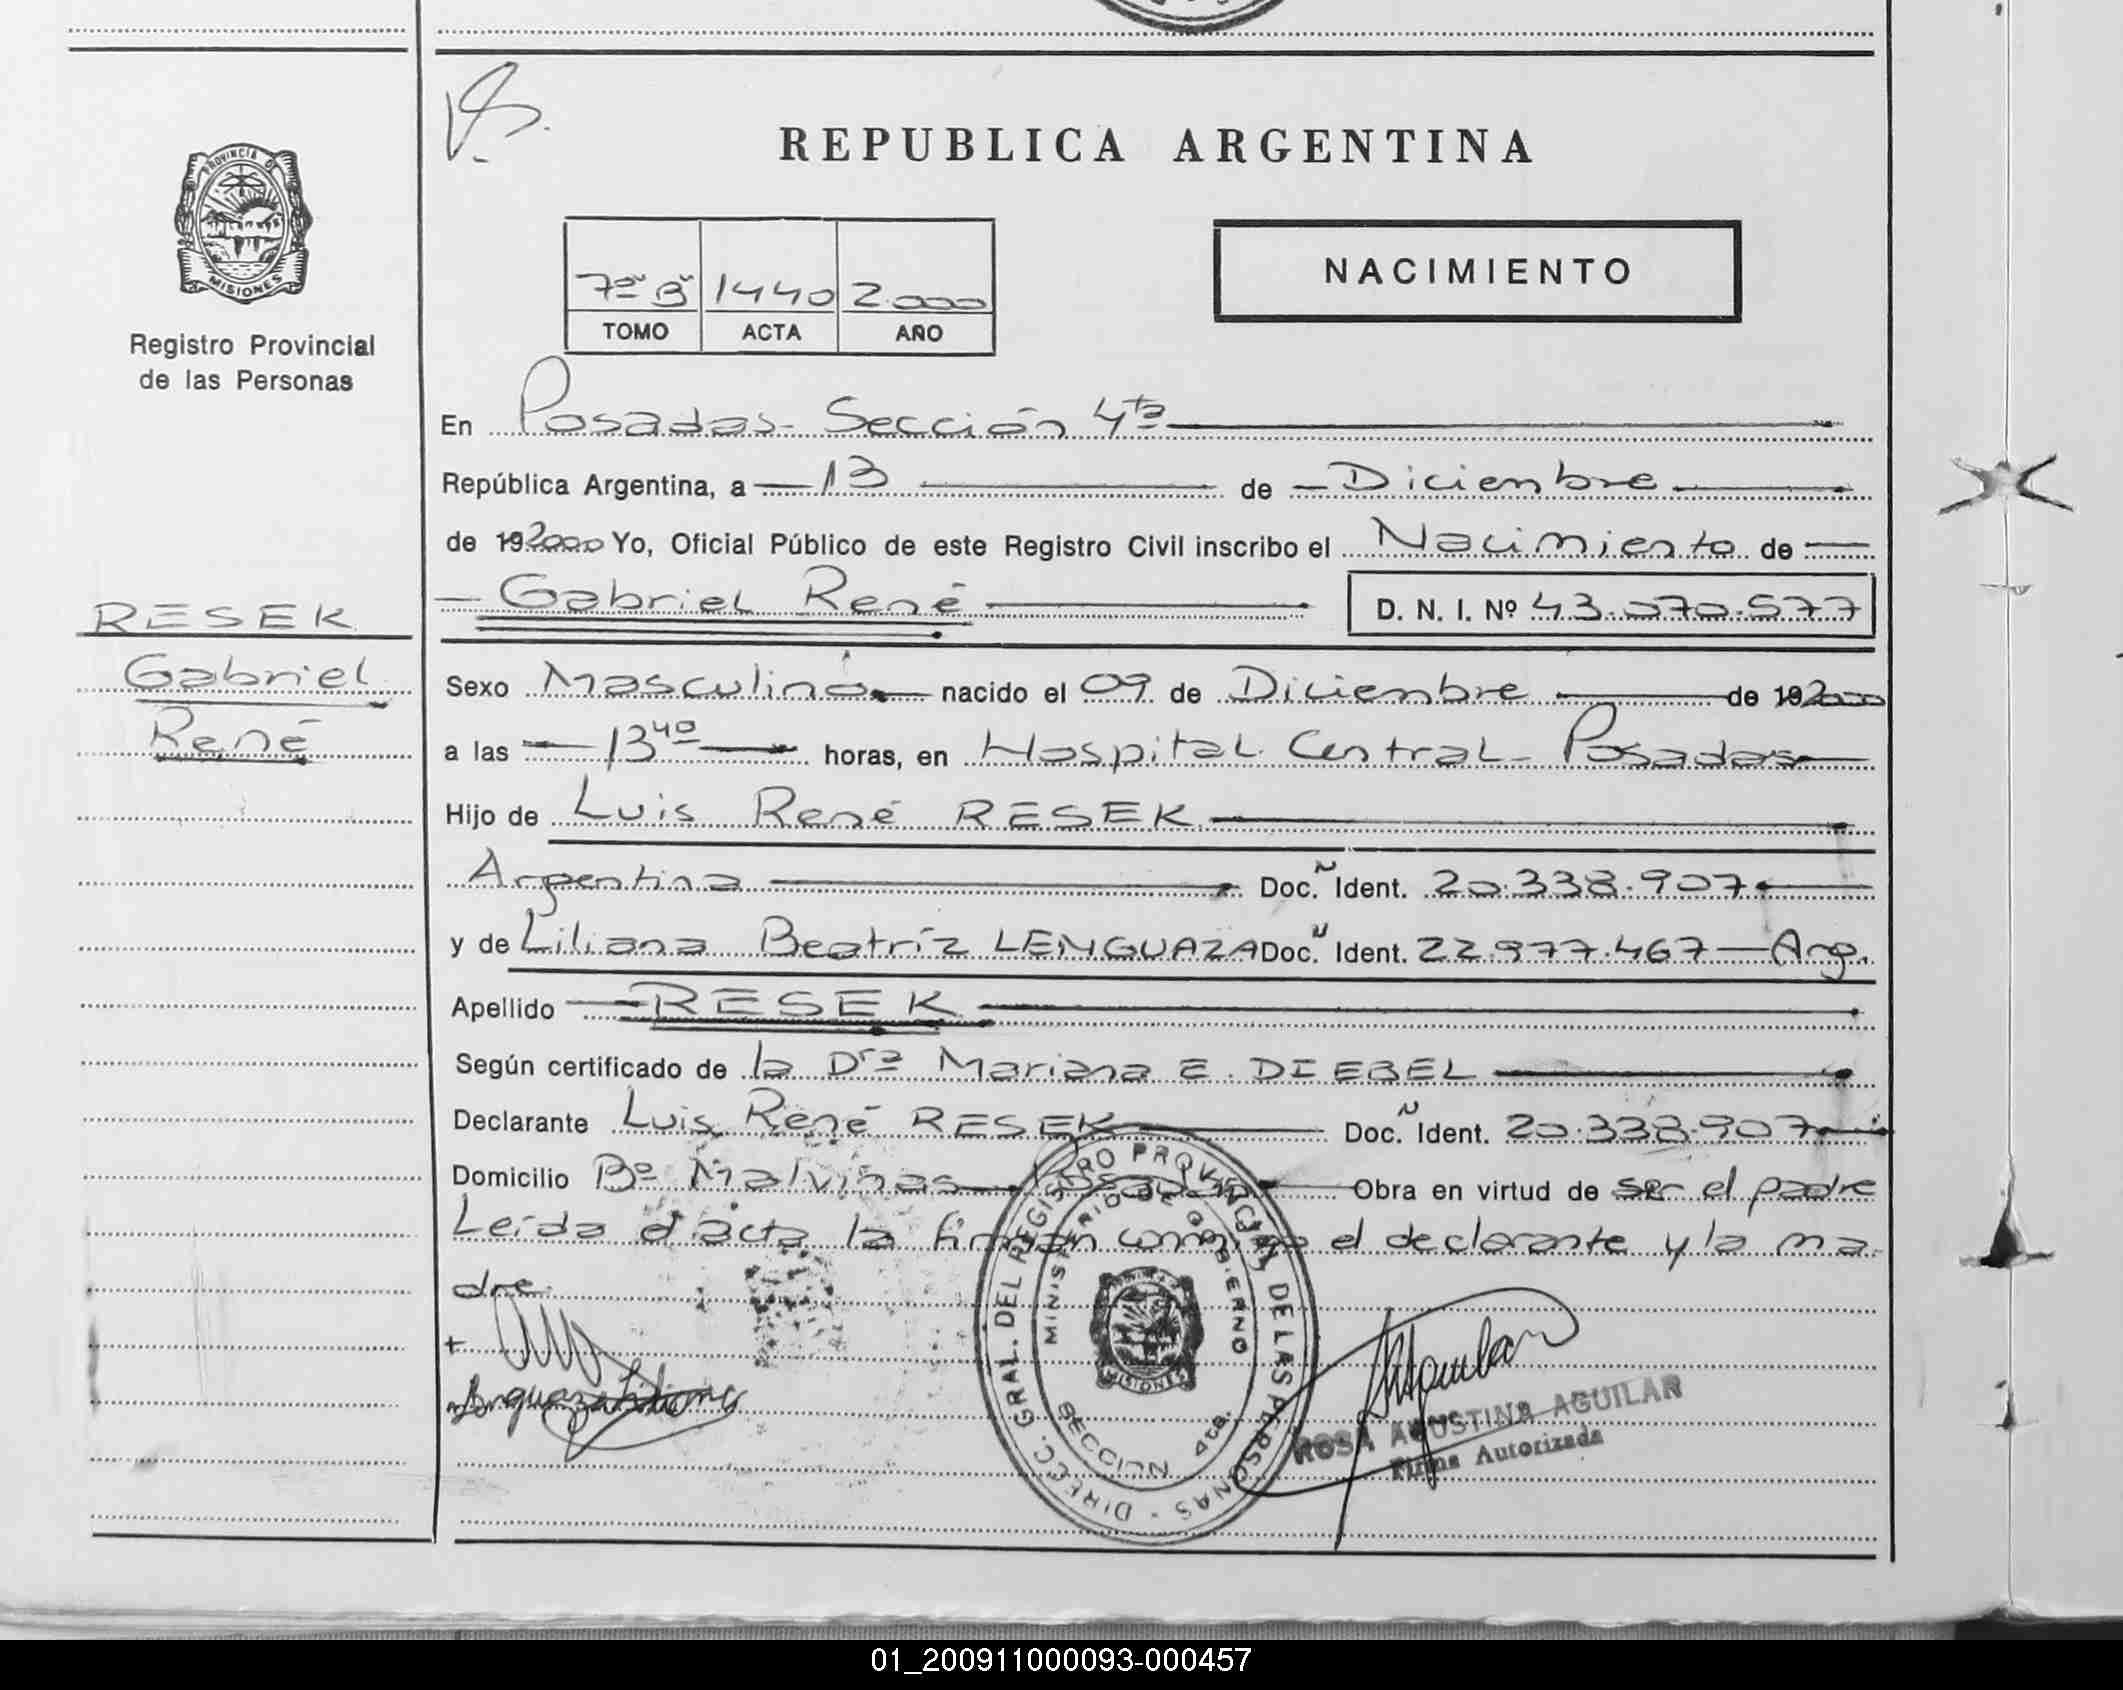 REPUBLICA ARGENTINA
PROVINCIA D
MISIONES
Registro Provincial
de las Personas
7º "B" 1440 2.000
TOMO ACTA AÑO
NACIMIENTO
En Posadas - Sección 4ta
República Argentina, a 13 de Diciembre
de 192000 Yo, Oficial Público de este Registro Civil inscribo el Nacimiento de
RESEK
Gabriel
René
Gabriel René D. N. I. Nº 43.070.577
Sexo Masculino nacido el 09 de Diciembre de 192000
a las 13 40 horas, en Hospital Central - Posadas
Hijo de Luis René RESEK
Argentina Doc. Ident. 20.338.907
y de Liliana Beatríz LENGUAZA Doc. Ident. 22.977.467 - Arg.
Apellido RESEK
Según certificado de la Dra Mariana E. DIEBEL
Declarante Luis René RESEK Doc. Ident. 20.338.907
Domicilio Bº Malvinas - Posadas Obra en virtud de ser el padre
Leída el acta la firman conmigo el declarante y la ma
dre.
Lenguaza Liliana
DIRECC. GRAL. DEL REGISTRO PROVINCIAL DE LAS PERSONAS -
MINISTERIO DE GOBIERNO
MISIONES
SECCION 4ta.
ROSA AGUSTINA AGUILAR
Firma Autorizada
01_200911000093-000457